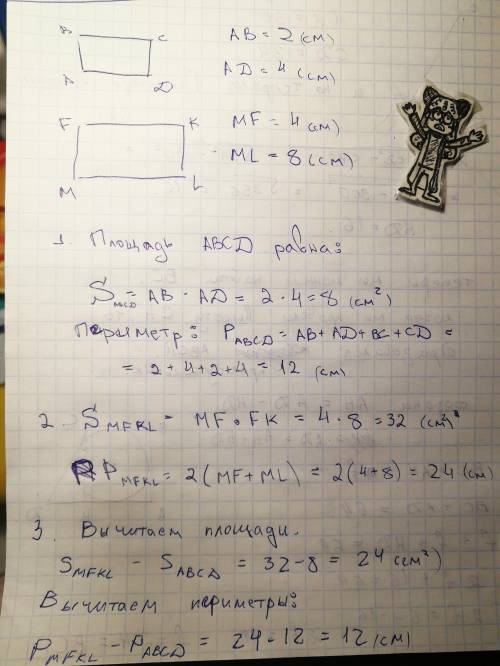 B C AB = 2 (см)
A D AD = 4 (см)
F K MF = 4 (см)
M L ML = 8 (см)
1. Площадь ABCD равна:
S ABCD = AB · AD = 2 · 4 = 8 (см²)
Периметр: P ABCD = AB + AD + BC + CD =
= 2 + 4 + 2 + 4 = 12 (см)
2 S MFKL = MF · FK = 4 · 8 = 32 (см)²
P MFKL = 2 (MF + ML) = 2 (4+8) = 24 (см)
3. Вычитаем площади.
S MFKL - S ABCD = 32 - 8 = 24 (см²)
Вычитаем периметры:
P MFKL - P ABCD = 24 - 12 = 12 (см)